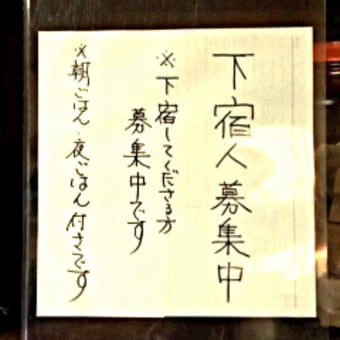 下宿人募集中
※下宿してくださる方
募集中です
※朝ごはん・夜ごはん付きです